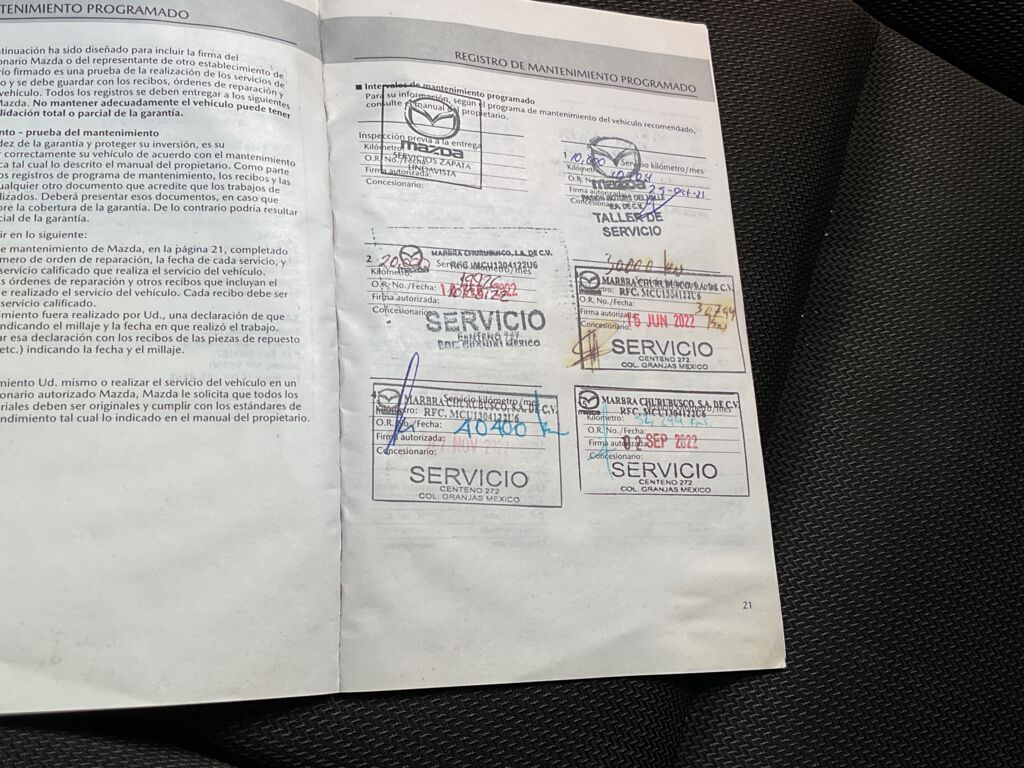 TENIMIENTO PROGRAMADO
tinuación ha sido diseñado para incluir la firma del
onario Mazda o del representante de otro establecimiento de
io firmado es una prueba de la realización de los servicios de
o y se debe guardar con los recibos, órdenes de reparación y
vehículo. Todos los registros se deben entregar a los siguientes
Mazda. No mantener adecuadamente el vehículo puede tener
lidación total o parcial de la garantía.
nto - prueba del mantenimiento
dez de la garantía y proteger su inversión, es su
r correctamente su vehículo de acuerdo con el mantenimiento
ca tal cual lo descrito el manual del propietario. Como parte
os registros de programa de mantenimiento, los recibos y las
ualquier otro documento que acredite que los trabajos de
lizados. Deberá presentar esos documentos, en caso que
bre la cobertura de la garantía. De lo contrario podría resultar
cial de la garantía.
ir en lo siguiente:
e mantenimiento de Mazda, en la página 21, completado
mero de orden de reparación, la fecha de cada servicio, y
servicio calificado que realiza el servicio del vehículo.
s órdenes de reparación y otros recibos que incluyan el
e realizado el servicio del vehículo. Cada recibo debe ser
servicio calificado.
imiento fuera realizado por Ud., una declaración de que
ndicando el millaje y la fecha en que realizó el trabajo.
ar esa declaración con los recibos de las piezas de repuesto
etc.) indicando la fecha y el millaje.
miento Ud. mismo o realizar el servicio del vehículo en un
onario autorizado Mazda, Mazda le solicita que todos los
riales deben ser originales y cumplir con los estándares de
ndimiento tal cual lo indicado en el manual del propietario.
REGISTRO DE MANTENIMIENTO PROGRAMADO
■ Intervalos de mantenimiento programado
Para su información, según el programa de mantenimiento del vehículo recomendado,
consulte el manual del propietario.
Inspección previa a la entrega
Kilómetro:
mazda
O.R. No./Fecha:
SERVICIOS ZAPATA
Firma autorizada:
LINDAVISTA
Concesionario:
1 10,000 Servicio kilómetro/mes
Kilómetro:
O.R. No.
mazda
Firma autorizada 25-Oct-21
Concesionario
S.A. DE C.V.
TALLER DE
SERVICIO
2 20,000 Servicio kilómetro/mes
MARBRA CHURUBUSCO, S.A. DE C.V.
RFC. MCU1304122U6
Kilómetro:
O.R. No./Fecha:
Firma autorizada:
Concesionario:
SERVICIO
CENTENO 272
COL. GRANJAS MEXICO
30000 km
MARBRA CHURUBUSCO, S.A. DE C.V.
RFC. MCU1304122U6
O.R. No./Fecha:
Firma autorizada:
Concesionario: 15 JUN 2022
SERVICIO
CENTENO 272
COL. GRANJAS MEXICO
4 Servicio kilómetro/mes
MARBRA CHURUBUSCO, S.A. DE C.V.
RFC. MCU1304122U6
O.R. No./Fecha: 40400 km
Firma autorizada: NOV
Concesionario:
SERVICIO
CENTENO 272
COL. GRANJAS MEXICO
MARBRA CHURUBUSCO, S.A. DE C.V.
mazda RFC. MCU1304122U6
Kilómetro:
O.R. No./Fecha:
Firma autorizada: 02 SEP 2022
Concesionario:
SERVICIO
CENTENO 272
COL. GRANJAS MEXICO
21